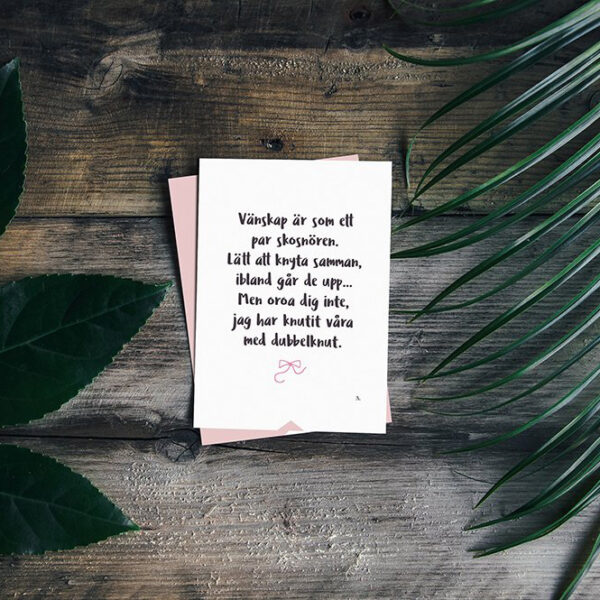 Vänskap är som ett
par skosnören.
Lätt att knyta samman,
ibland går de upp...
Men oroa dig inte,
jag har knutit våra
med dubbelknut.